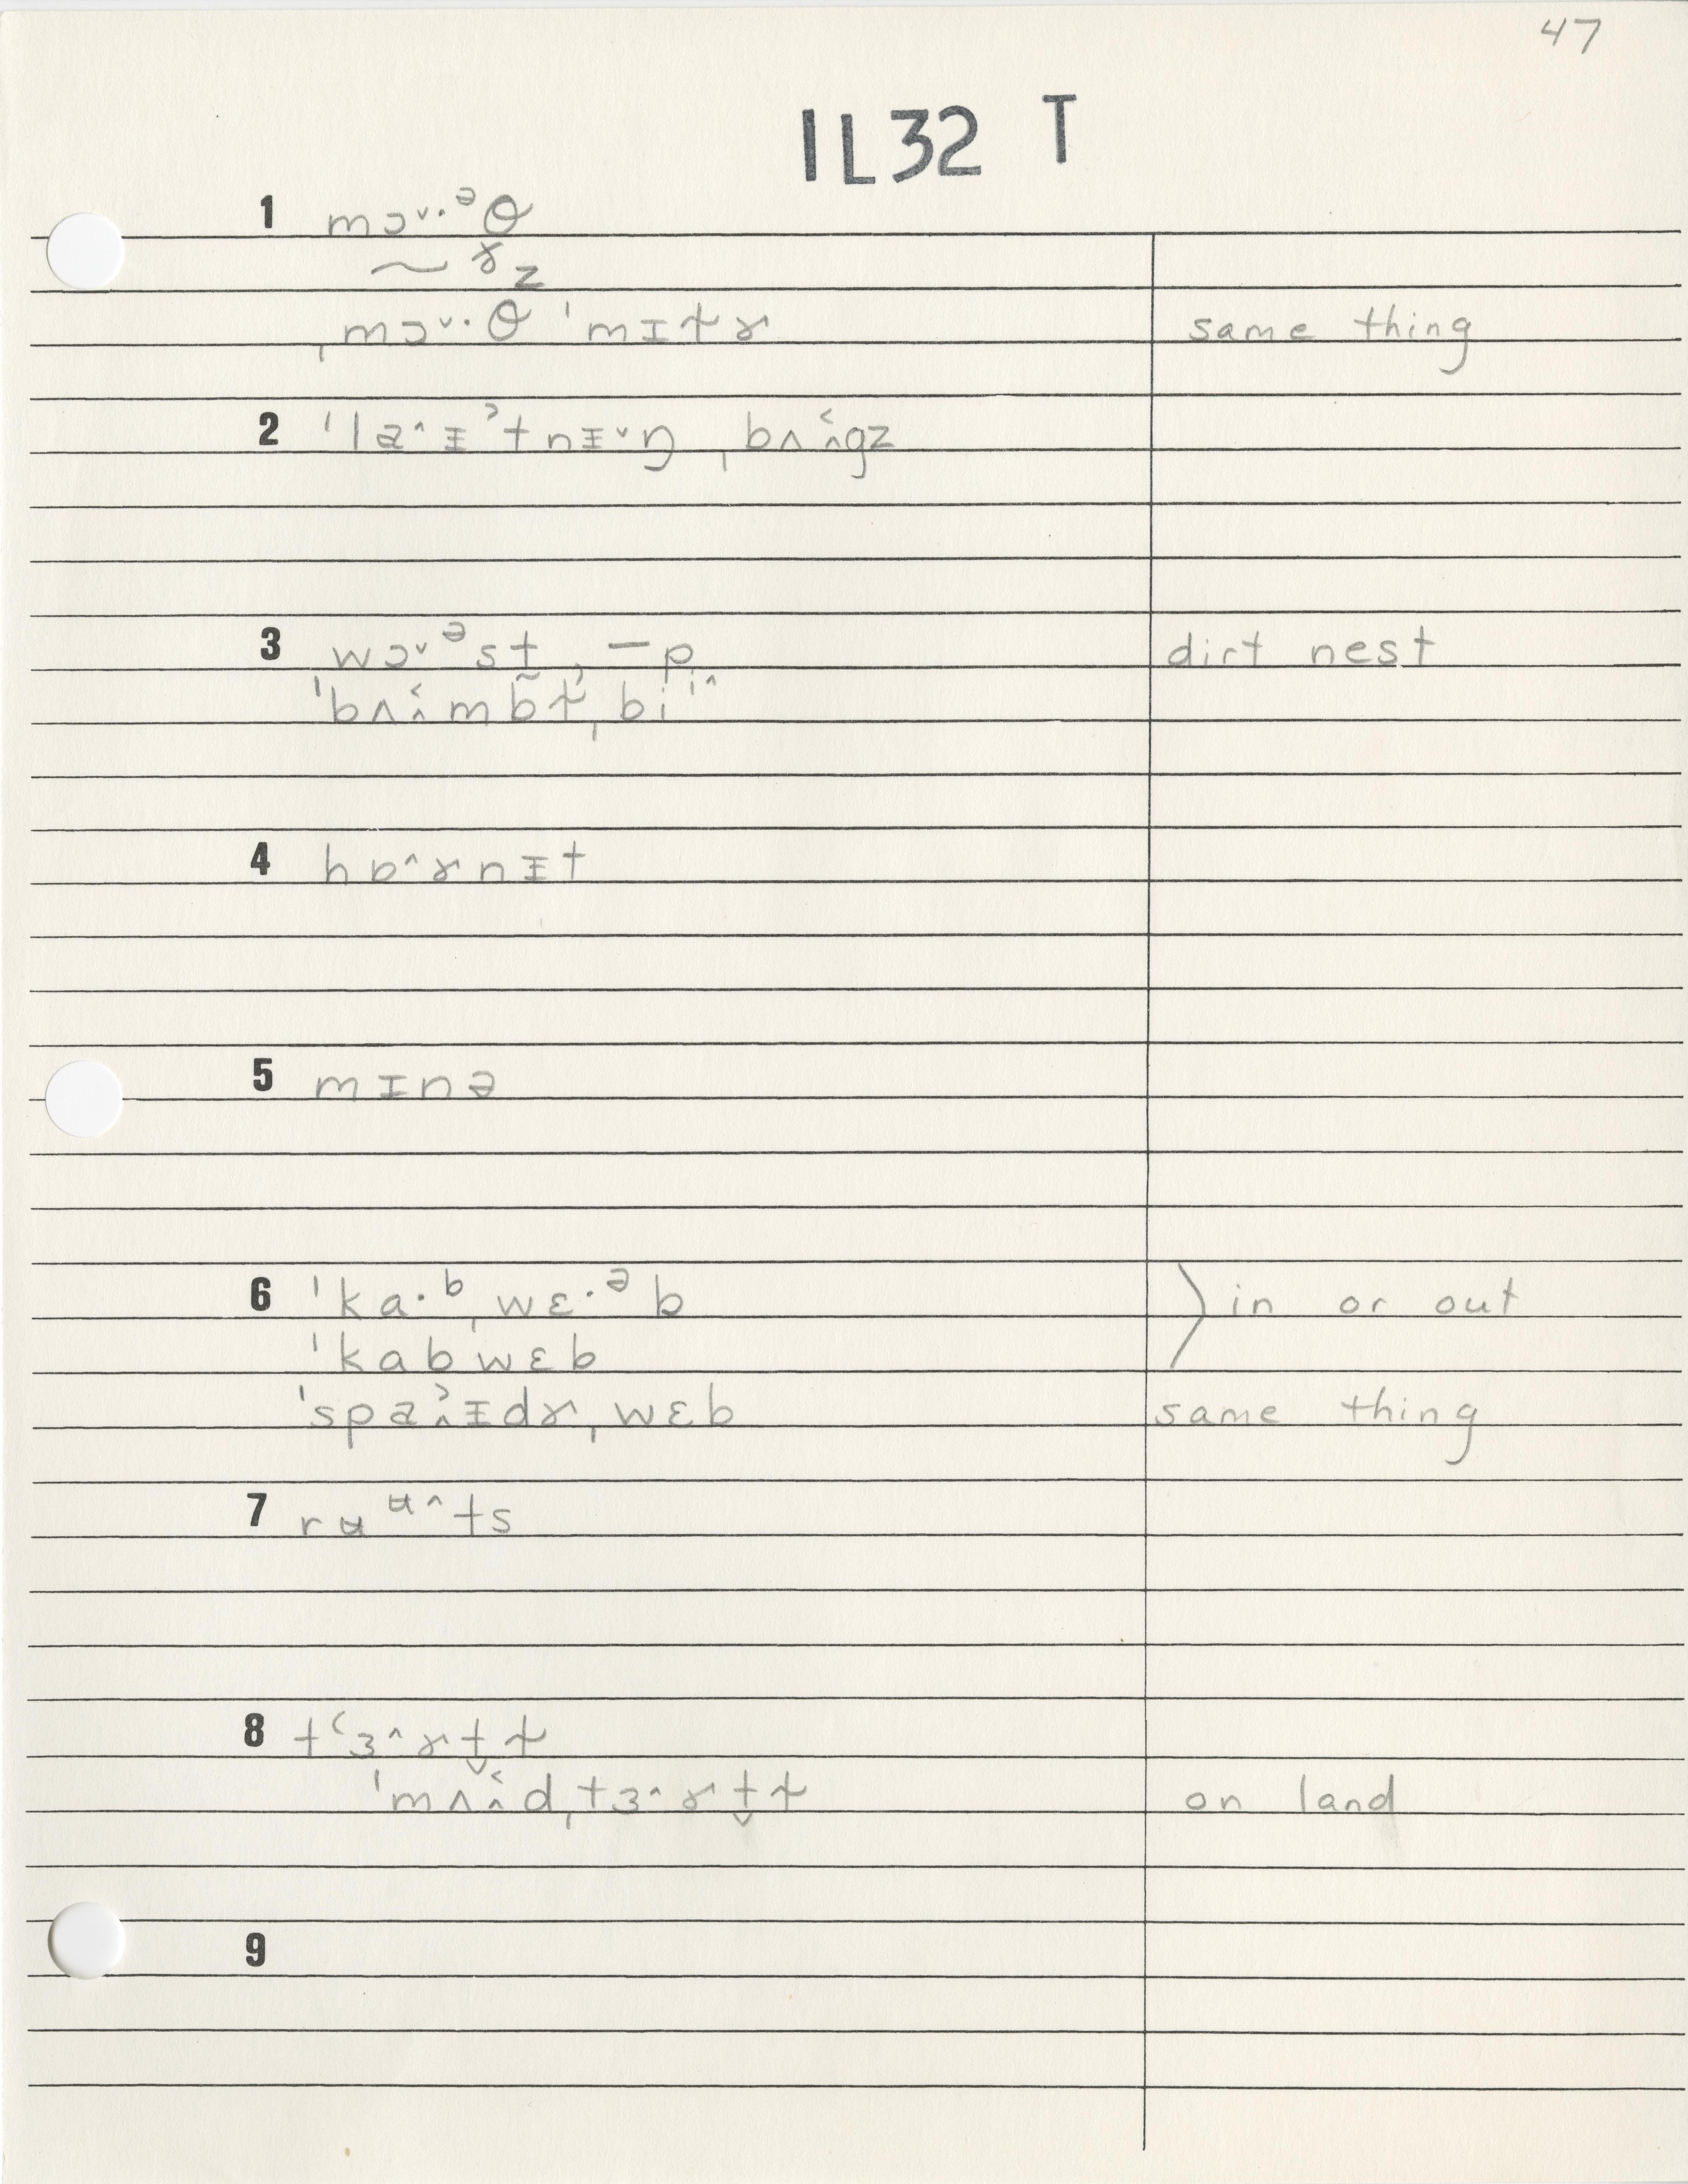 47
IL32 T
1 mɔ˅·ᵊθ
~ ɤz
ˌmɔ˅·θ ˈmɪɫɤ same thing
2 ˈla˄ᵻʾtnᵻ˅ŋ ˌbʌʌ̭˂gz
3 wɔ˅ᵊst, –p dirt nest
ˈbʌʌ̭˂mbɫ̩ˌbiⁱ˄
4 hɒ˄ɤnᵻt
5 mɪnə
6 ˈka·bˌwɛ·ᵊb ⟩ in or out
ˈkabwɛb
ˈspa˄˒ᵻdɤˌwɛb same thing
7 rʉᶶ˄ts
8 tʻɜ˄ɤt̬ɫ
ˈmʌʌ̭˂dˌtɜ˄ɤt̬ɫ on land
9